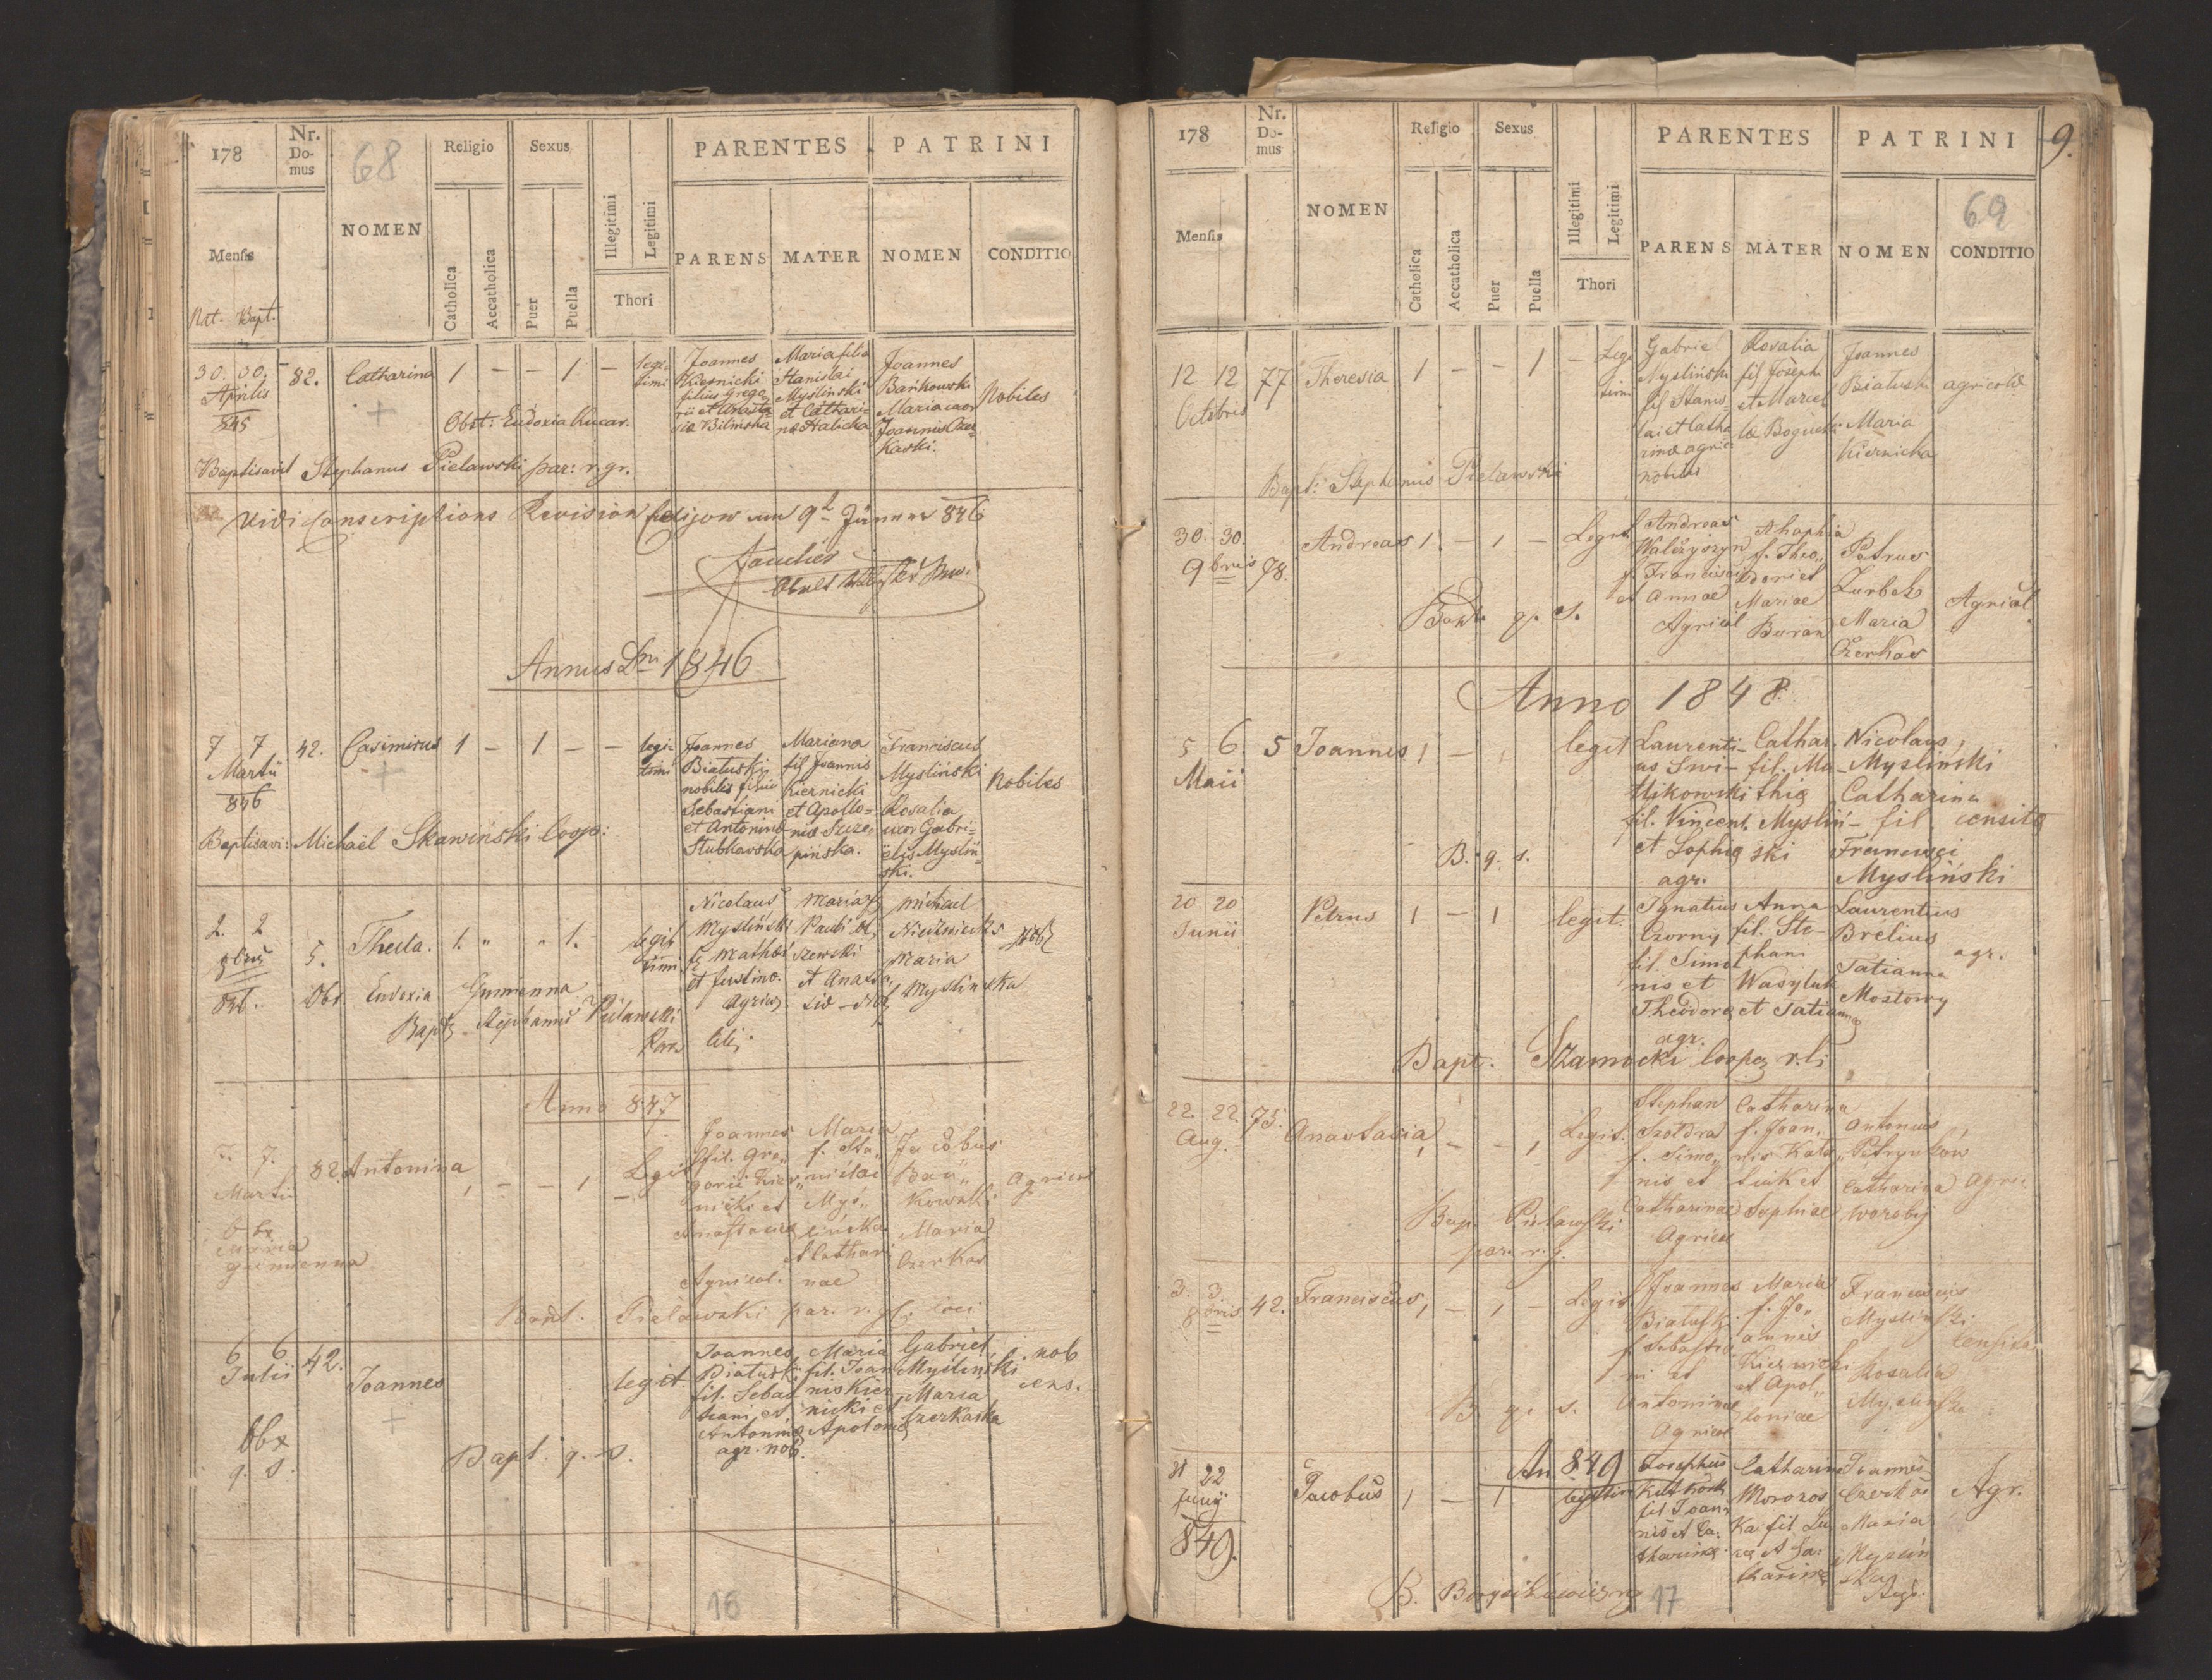 178
Nr.
Do-
mus
68
NOMEN
Religio
Sexus
Illegitimi
Legitimi
PARENTES
PATRINI
Mensis
Catholica
Accatholica
Puer
Puella
Thori
PARENS
MATER
NOMEN
CONDITIO
Nat. Bapt.
30. 30.
Aprilis
845
82.
Catharina
1 - - 1 -
legi-
timi
Joannes
Kiernicki
filius Grego-
rii et Anasta-
siæ Bilinska
Maria filia
Stanislai
Myslinski
et Cathari-
næ Halicka
Joannes
Bańkowski
Maria uxor
Joannis Czer-
kaski.
Nobiles
Obst: Eudoxia Kucar.
Baptisavit Stephanus Pielawski par: r. gr.
Vidi Conscriptions Revision 9t Jänner 846
Annus Dni 1846
7 7
Martii
846
42.
Casimirus
1 - 1 - -
legi-
timi
Joannes
Białuski
nobilis filius
Sebastiani
et Antoninæ
Stubkowska
Mariana
fil Joannis
Kiernicki
et Apollo-
niæ Szcze-
pińska.
Franciscus
Mysliński
Rosalia
uxor Gabri-
elis Myslin-
ski.
Nobiles
Baptisavi: Michaël Skawiński Coop:
2. 2
846.
5.
Thecla.
1. " " 1. -
legit
timi
Nicolaus
Mysliński
Mathæi
et Justina.
Agric
Maria f
Pauli
szewski
et Anasta-
siæ
Michael
Maria
Myslinska
Nob
Obs. Eudoxia Gumienna
Bapt Stephanus Pielawski
Par
Anno 847
7.
Martii
82.
Antonina
1 - - 1
Legit
Joannes
fil. Gre-
gorii Kier-
nicki et
Anastasiæ
Agricol.
Maria
f. Sta-
nislai
Myś-
lińska
et Cathari
nae
Jacobus
Bań-
kowski
Maria
Czerkas
Agricol
Obs
Maria
Gumienna
Bapt. Pielawski par. r. g. loci
6 6
Julii
42.
Joannes
legit
Joannes
Białuski
fil. Sebas
tiani et
Antoninæ
agr. nob.
Maria
fil. Joan
nis Kier-
nicki et
Apoloniæ
Gabriel
Myśliński
Maria
Czerkaska
nob
cens.
Obs
q. s.
Bapt. q. s.
16
178
Nr.
Do-
mus
NOMEN
Religio
Sexus
Illegitimi
Legitimi
PARENTES
PATRINI
9.
69
Mensis
Catholica
Accatholica
Puer
Puella
Thori
PARENS
MATER
NOMEN
CONDITIO
12 12
Octobris
77
Theresia
1 - - 1 -
Legi
timi
Gabriel
Mysliński
fil Stanis-
lai et Catha
rinæ agric
nobiles
Rosalia
fil Joseph
et Mariæ
Bogucki
Joannes
Białuski
Maria
Kiernicka
agricolæ
Bapt: Stephanus Pielawski
30. 30.
9bris
78.
Andreas
1. - 1 -
Legit
Andreas
Walczyszyn
f. Francisci
et Annae
Agricol
f. Theo-
dori et
Mariae
Buran
Petrus
Zurbek
Maria
Czerkas
Agricol
Bapt. q. s.
Anno 1848.
5 6
Maii
5
Joannes
1 - 1
legit
Laurenti-
us Swi-
tlikowski
fil. Vincent.
et Sophiæ
agr.
Cathar.
fil. Ma-
thiæ
Myslin-
ski
Nicolaus
Mysliński
Catharina
fil.
Francisci
Mysliński
censitæ
B. q. s.
20 20
Junii
Petrus
1 - 1
legit.
Ignatius
Czorny
fil. Simo
nis et
Theodoræ
agr.
Anna
fil. Ste-
phani
Wasyluk
et Tatiannæ
Laurentius
Brelius
Tatianna
Mostowy
agr.
Bapt. Szamocki Coop. r. l.
22. 22.
Aug.
75.
Anastasia
1 - - 1
Legit.
Stephan
Szoldra
f. Simo-
nis et
Catharinae
Agricol
Catharina
f. Joan-
nis
et
Sophiae
Antonius
Petrynkow
Catharina
Worobij
Agric
Bap. Pielawski
par. r. g.
3. 3.
8bris
42.
Franciscus
1 - 1 -
Legit
Joannes
Białuski
f. Sebastia
ni et
Antoninæ
Agricol
Maria
f. Jo-
annis
Kiernicki
et Apol-
loniae
Franciscus
Mysliński
Rosalia
Myslinska
Censitæ
B q. s.
An. 849
21 22
Junij
849.
Jacobus
1 - 1
legitim
Josephus
fil Joan-
nis et Ca-
tharinæ
Catharina
Moroz
ka fil Lu
cæ et Ca-
tharinæ
Joannes
Czerkas
Maria
Myslin
ska
Agr.
17